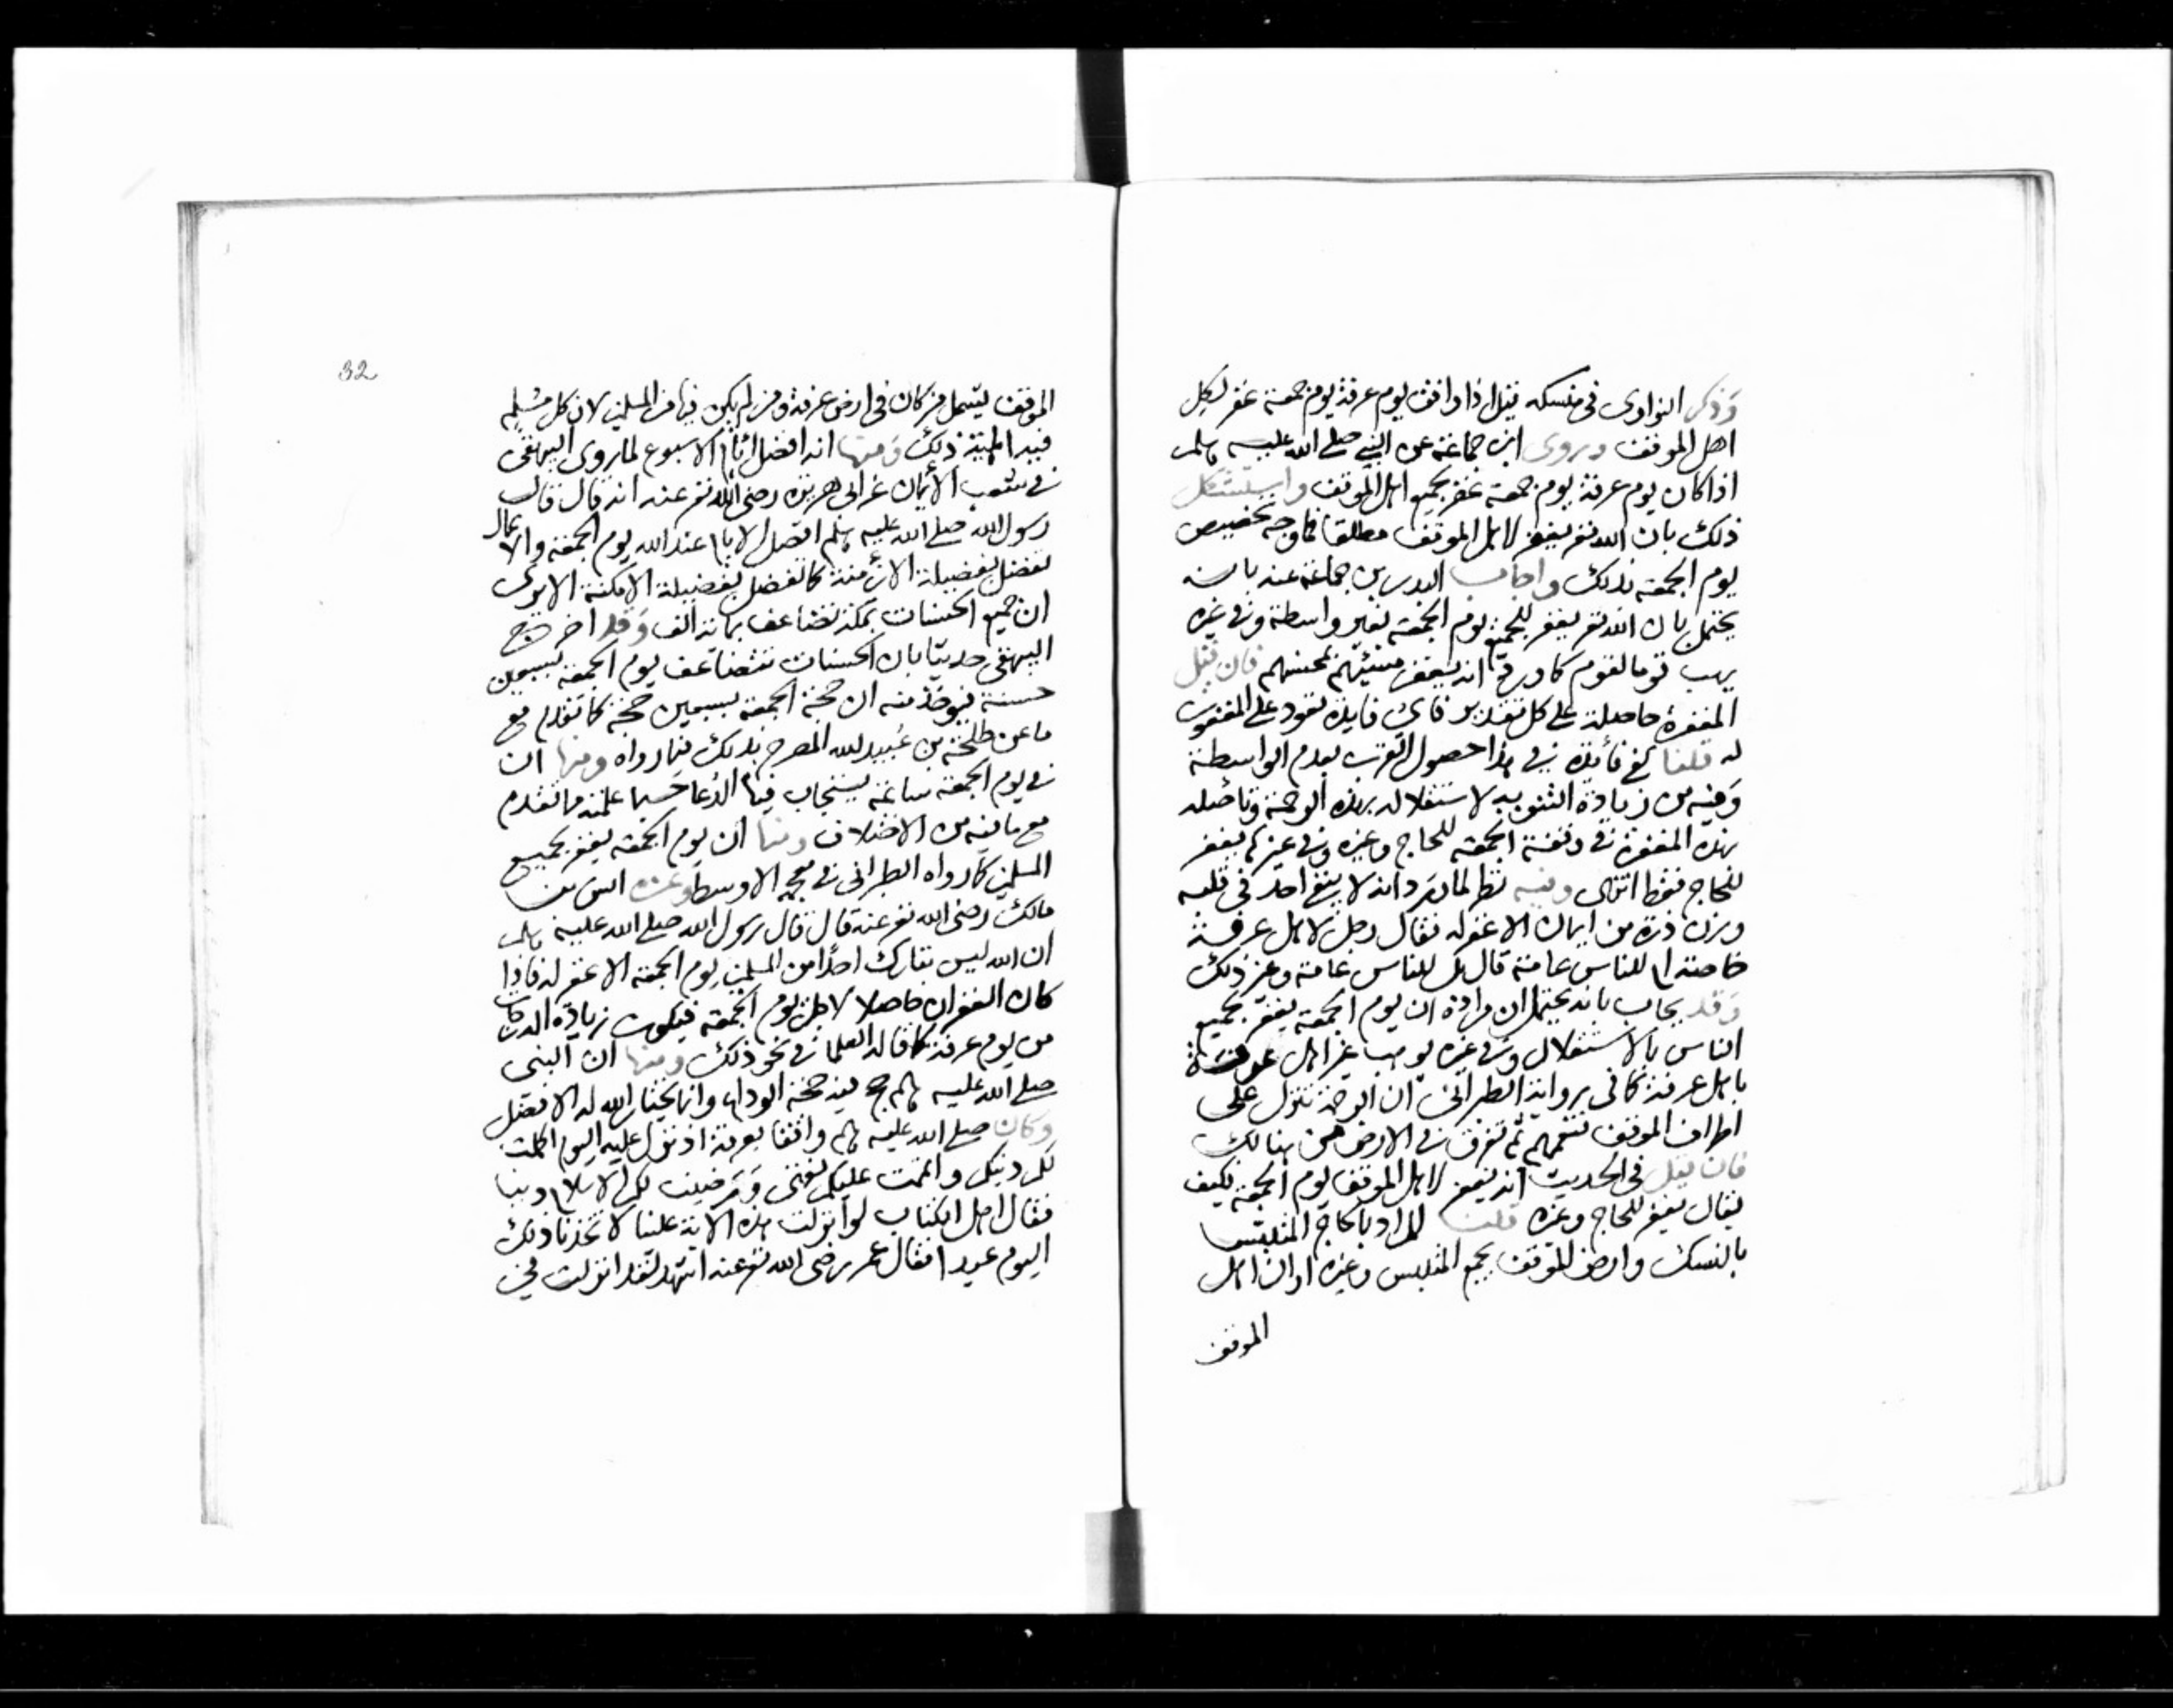 وذكر النواوى فى منسكه قيل اذا وافق يوم عرفة يوم جمعة غفر لكل
اهل الموقف وروى ابن جماعة عن النبي صلى الله عليه وسلم
اذا كان يوم عرفة يوم جمعة غفر لجميع اهل الموقف واستشكل
ذلك بان الله تعر يغفر لاهل الموقف مطلقا فما وجه تخصيص
يوم الجمعة بذلك واجاب البدر بن جماعة عنه بانه
يحتمل بان الله تعر يغفر للجميع يوم الجمعة بغير واسطة وفى غيره
يهب قوما لقوم كما ورد انه يغفر مسيئهم لمحسنهم فان قيل
المغفرة حاصلة على كل تقدير فاى فايدة تعود على المغفور
له قلنا كفى فائدة فى هذا حصول القرب بعدم الواسطة
وفيه من زيادة التنويه لاستقلاله بهذه الرحمة وتاصله
بهذه المغفرة فى وقفة الجمعة للحاج وغيره وفى غيرها يغفر
للحاج فقط انتهى وفيه نظر لما ورد انه لا يبقى احد فى قلبه
وزن ذرة من ايمان الا غفر له فقال رجل لاهل عرفة
خاصة ام للناس عامة قال بل للناس عامة وغير ذلك
وقد يجاب بانه يحتمل ان مراده ان يوم الجمعة يغفر لجميع
الناس بالاستقلال وفى غيره يوهب غير اهل عرفة
باهل عرفة كما فى رواية الطبرانى ان الرحمة تنزل على
اطراف الموقف فتعمهم ثم تفرق فى الارض من هنالك
فان قيل فى الحديث انه يغفر لاهل الموقف يوم الجمعة فكيف
يقال يغفر للحاج وغيره قلت المراد بالحاج المتلبس
بالنسك وارض الموقف يجمع المتلبس وغيره او ان اهل
الموقف
32
الموقف يشمل من كان فى ارض عرفة ومن لم يكن فيها من المسلمين لان كل مسلم
فيه اهلية ذلك ومنها انه افضل ايام الاسبوع لما روى البيهقى
فى شعب الايمان عن ابى هريرة رضى الله تعر عنه انه قال قال
رسول الله صلى الله عليه وسلم افضل الايام عند الله يوم الجمعة والاعمال
تفضل بفضيلة الازمنة كما تفضل بفضيلة الامكنة الا ترى
ان جميع الحسنات بمكة تضاعف بمائة الف وقد اخرج
البيهقى حديثا بان الحسنات تتضاعف يوم الجمعة بسبعين
حسنة فيوخذ منه ان حجة الجمعة بسبعين حجة كما تقدم مع
ما عن طلحة بن عبيد الله المصرح بذلك فيما رواه ومنها ان
فى يوم الجمعة ساعة يستجاب فيها الدعا حسبما علمته مما تقدم
مع ما فيه من الاختلاف ومنها ان يوم الجمعة يغفر لجميع
المسلمين كما رواه الطبرانى فى معجمه الاوسط وغيره انس بن
مالك رضى الله تعر عنه قال قال رسول الله صلى الله عليه وسلم
ان الله ليس بتارك احدا من المسلمين يوم الجمعة الا غفر له فاذا
كان الغفران حاصلا لاجل يوم الجمعة فيكون زيادة الدرجات
من يوم عرفة كما قاله العلما فى نحو ذلك ومنها ان النبى
صلى الله عليه وسلم حج فيه حجة الوداع وانما يختار الله له الافضل
وكان صلى الله عليه وسلم واقفا بعرفة اذ نزل عليه اليوم اكملت
لكم دينكم واتممت عليكم نعمتى ورضيت لكم الاسلام دينا
فقال اهل الكتاب لو انزلت هذه الاية علينا لاتخذنا ذلك
اليوم عيدا فقال عمر رضى الله تعر عنه اشهد لقد انزلت فى